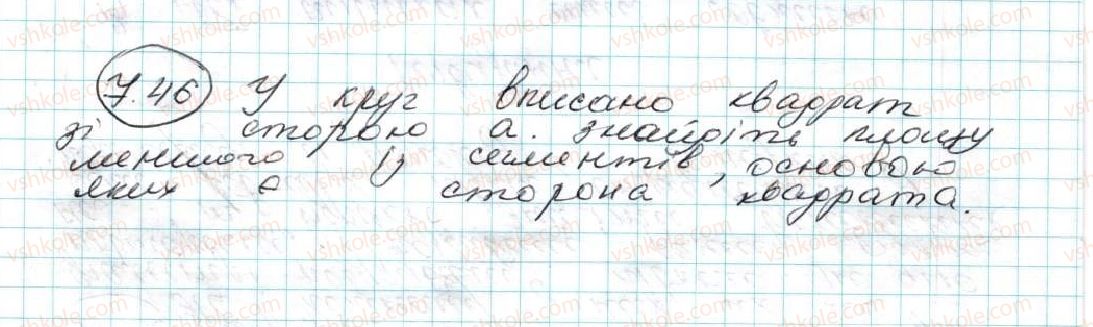 7.46 У круг вписано квадрат
зі стороною а. Знайдіть площу
меншого із сегментів, основою
яких є сторона квадрата.